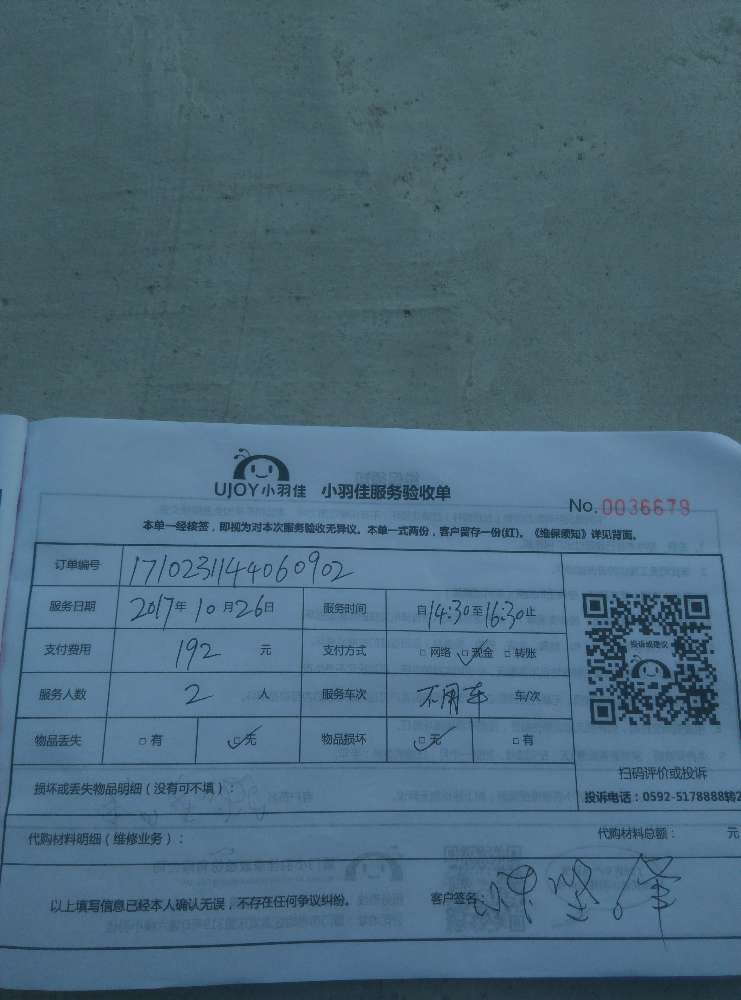 UJOY小羽佳 小羽佳服务验收单
No. 0036679
本单一经接签，即视为对本次服务验收无异议。本单一式两份，客户留存一份(红)。《维保须知》详见背面。
订单编号 1710231144060902
服务日期 2017年10月26日 服务时间 自14:30至16:30止
支付费用 192 元 支付方式 □网络 ☑现金 □转账
投诉或建议
服务人数 2 人 服务车次 不用车 车/次
物品丢失 □有 ☑无 物品损坏 ☑无 □有
扫码评价或投诉
损坏或丢失物品明细（没有可不填）：
投诉电话：0592-5178888转2
代购材料明细（维修业务）： 代购材料总额： 元
以上填写信息已经本人确认无误，不存在任何争议纠纷。 客户签名：